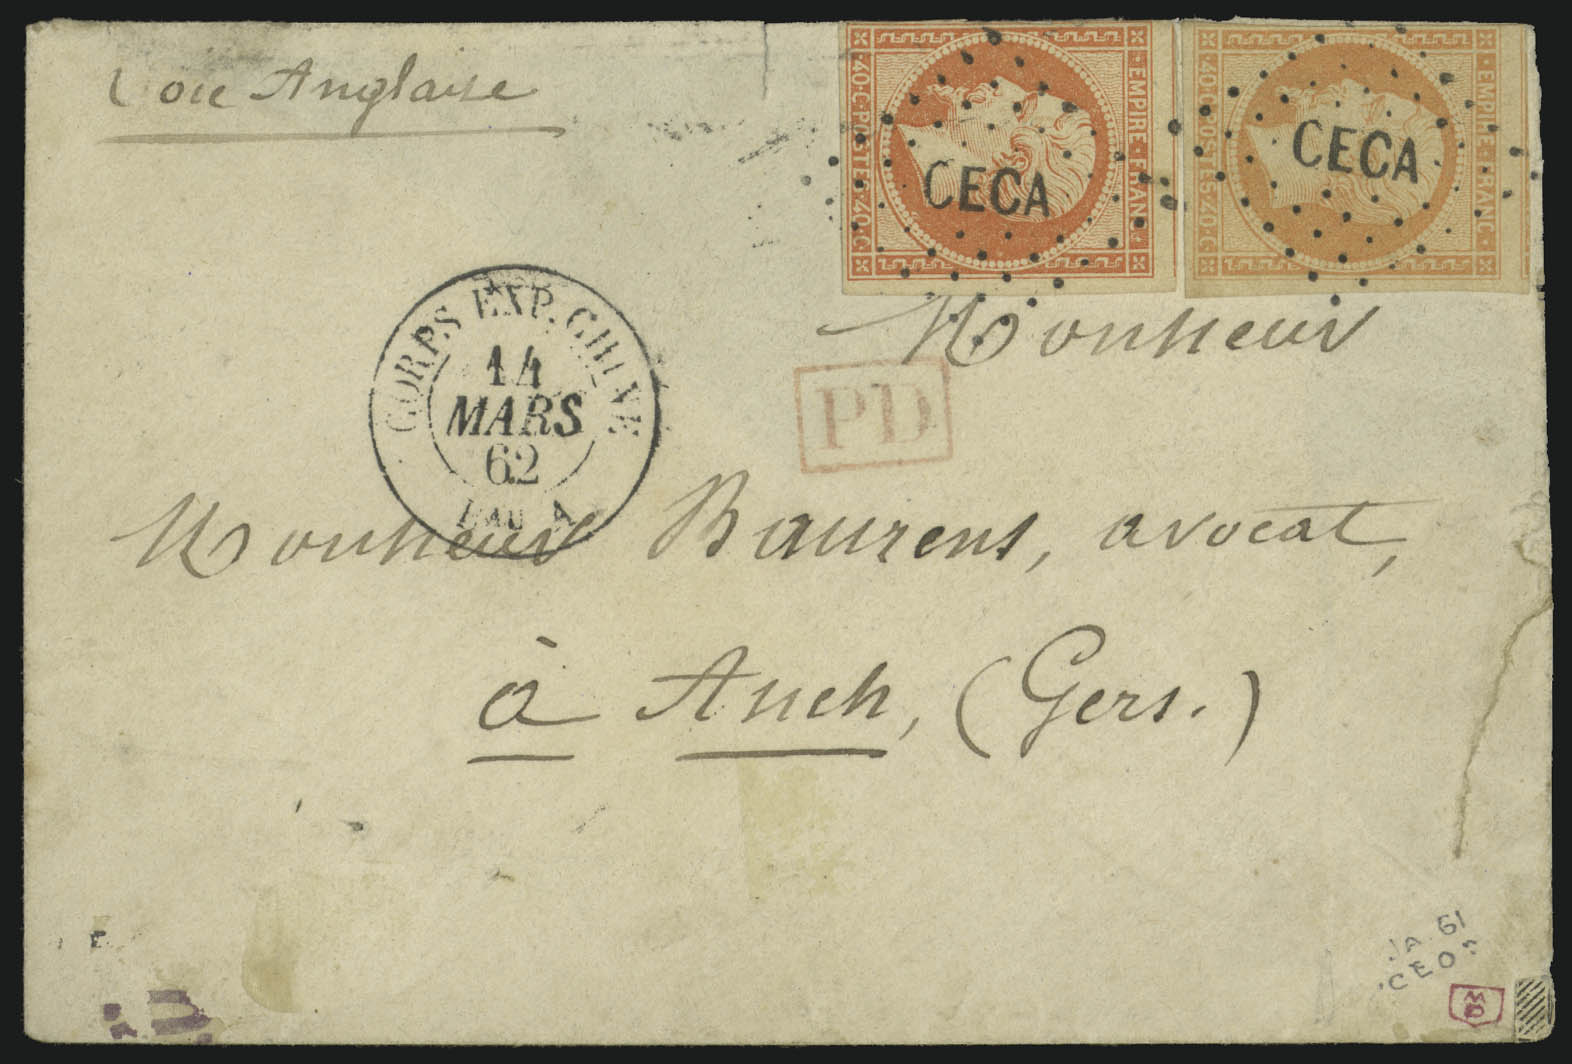 Voie Anglaise
EMPIRE · FRANC ·
· 40 · C · POSTES · 40 · C ·
CECA
EMPIRE · FRANC ·
· 40 · C · POSTES · 40 · C ·
CECA
CORPS EXP. CHINE
14
MARS
62
BAU A
PD
Monsieur
Monsieur Baurens, avocat,
à Auch, (Gers.)